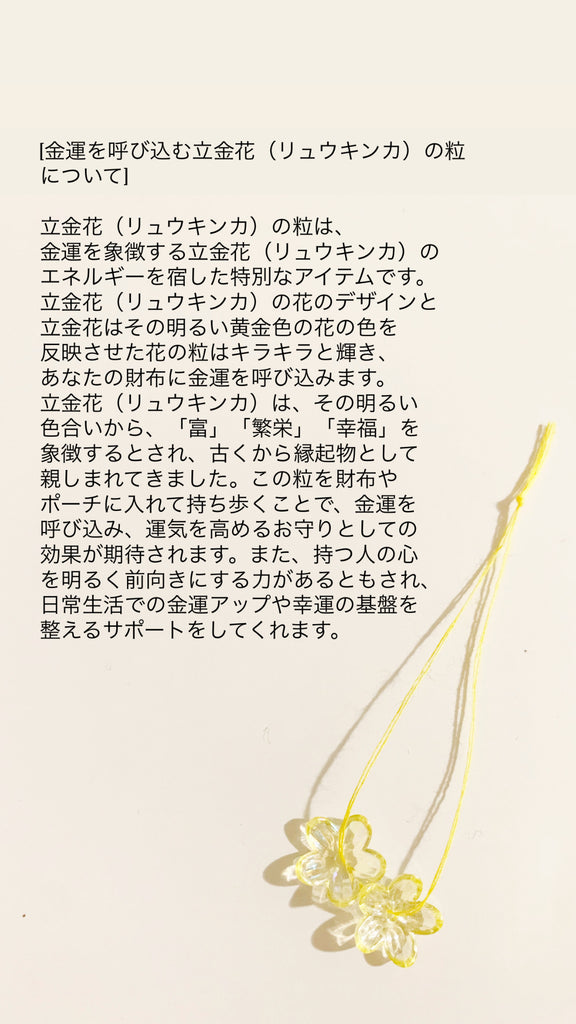 [金運を呼び込む立金花（リュウキンカ）の粒
について]
立金花（リュウキンカ）の粒は、
金運を象徴する立金花（リュウキンカ）の
エネルギーを宿した特別なアイテムです。
立金花（リュウキンカ）の花のデザインと
立金花はその明るい黄金色の花の色を
反映させた花の粒はキラキラと輝き、
あなたの財布に金運を呼び込みます。
立金花（リュウキンカ）は、その明るい
色合いから、「富」「繁栄」「幸福」を
象徴するとされ、古くから縁起物として
親しまれてきました。この粒を財布や
ポーチに入れて持ち歩くことで、金運を
呼び込み、運気を高めるお守りとしての
効果が期待されます。また、持つ人の心
を明るく前向きにする力があるともされ、
日常生活での金運アップや幸運の基盤を
整えるサポートをしてくれます。